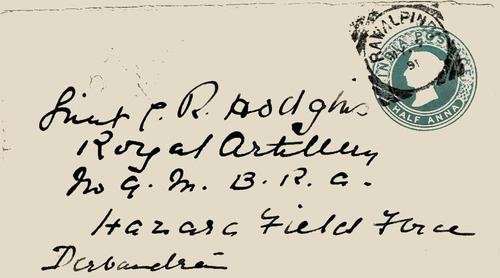 RAWALPINDI
91
INDIA POSTAGE
HALF ANNA
Lieut C. R. Hodgins
Royal Artillery
No 9. M. B. R. A.
Hazara Field Force
Darbandrin